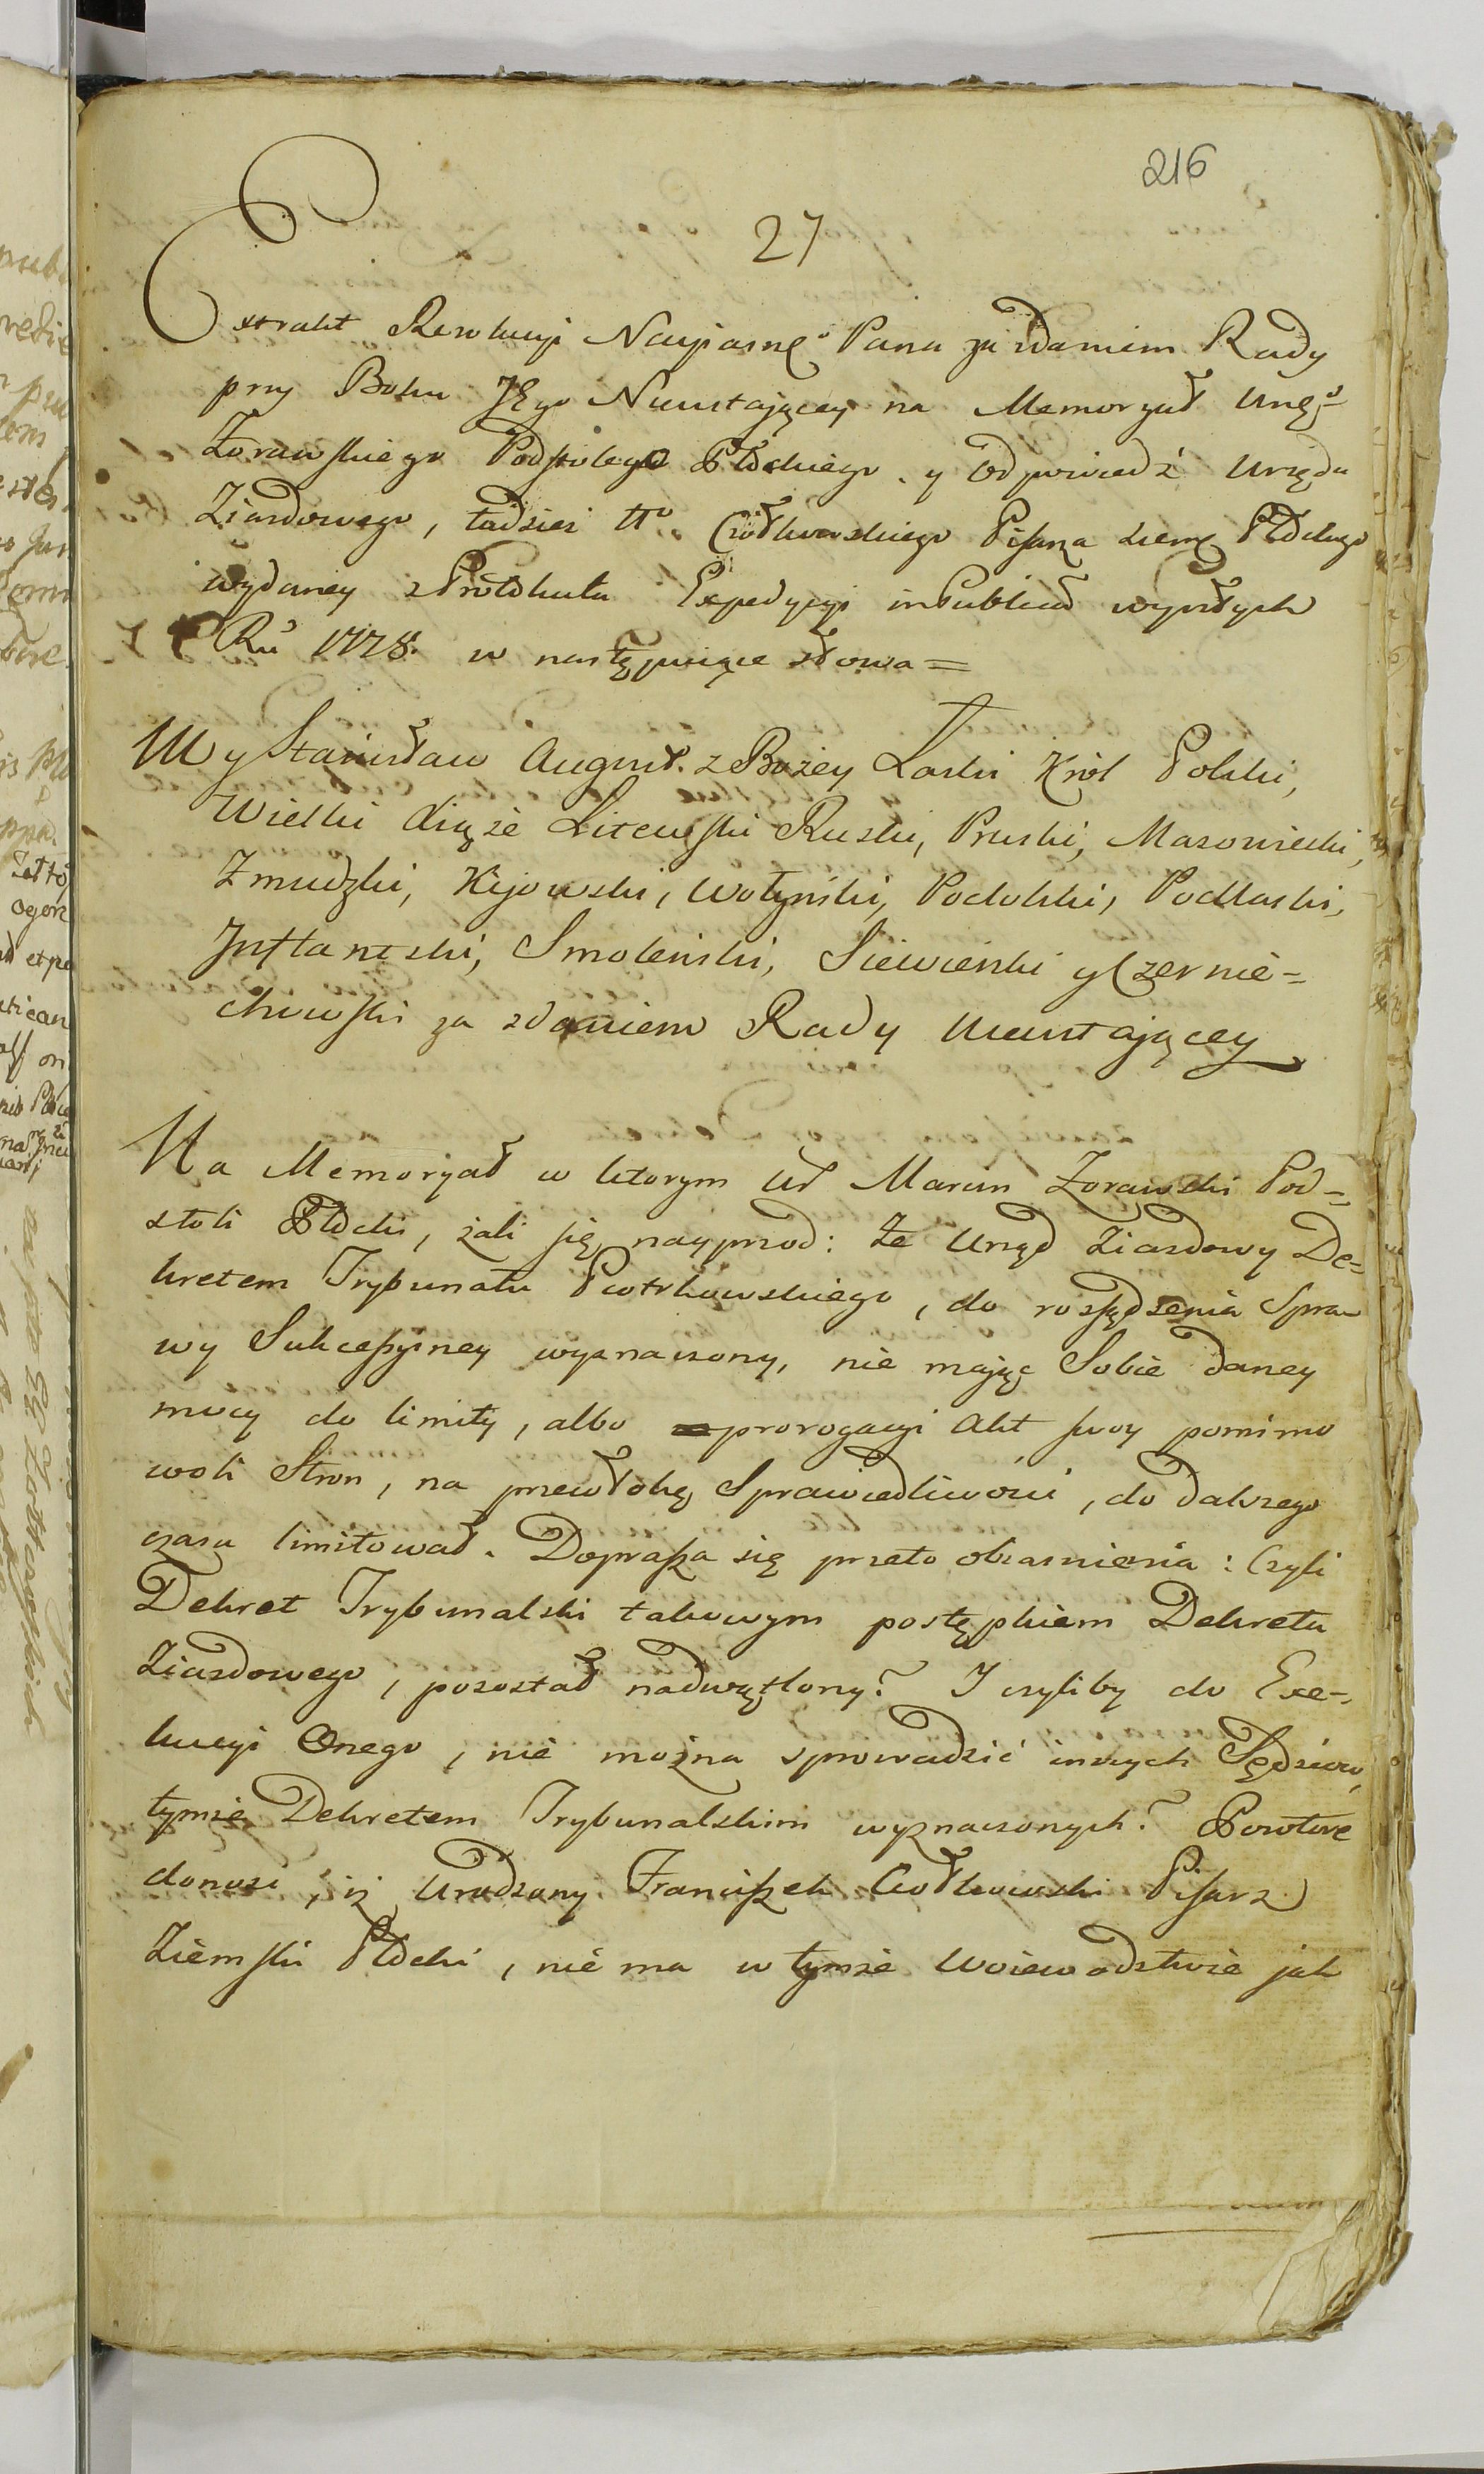 216
27
Extrakt Rezolucyi Nayiasnę° Pana za zdaniem Rady
przy Boku JEgo Nieustaiącey na Memoryał Urzę°
Zorawskiego Podstolego Płockiego y Odpowiedź Urzędu
Ziazdowego, tudziesz Ur° Ciołkowskiego Pisarza Ziemę Płockiego
wydaney z Protokułu Expedycyi in Publicum wyszłych
Ru 1778. w następuiące słowa =
My Stanisław August z Bożey Łaski Król Polski,
Wielki Xiąże Litewski Ruski, Pruski, Mazowiecki,
Zmudzki, Kijowski, Wołyński, Podolski, Podlaski,
Inflantski, Smoleński, Siewierski y Czernie=
chowski za zdaniem Rady Nieustaiącey
Na Memoryał w ktorym Ur Marcin Zorawski Pod=
stoli Płocki, żali się nayprzod: że Urząd Ziazdowy De=
kretem Trybunału Piotrkowskiego, do rozsądzenia Spra
wy Sukcessyiney wyznaczony, nie maiąc Sobie daney
mocy do limity, albo prorogacyi Akt swoy pomimo
woli Stron, na przewłokę Sprawiedliwości, do dalszego
czasu limitował. Doprasza się przeto obiasnienia: Czyli
Dekret Trybunalski takowym postępkiem Dekretu
Ziazdowego, pozostał nadwątlony? I czyliby do Exe=
kucyi Onego, nie można sprowadzić innych Sędziow,
tymże Dekretem Trybunalskim wyznaczonych? Powtore
donosi, iż Urodzony Franciszek Ciołkowski Pisarz
Ziemski Płocki, nie ma w tymże Woiewodztwie jak